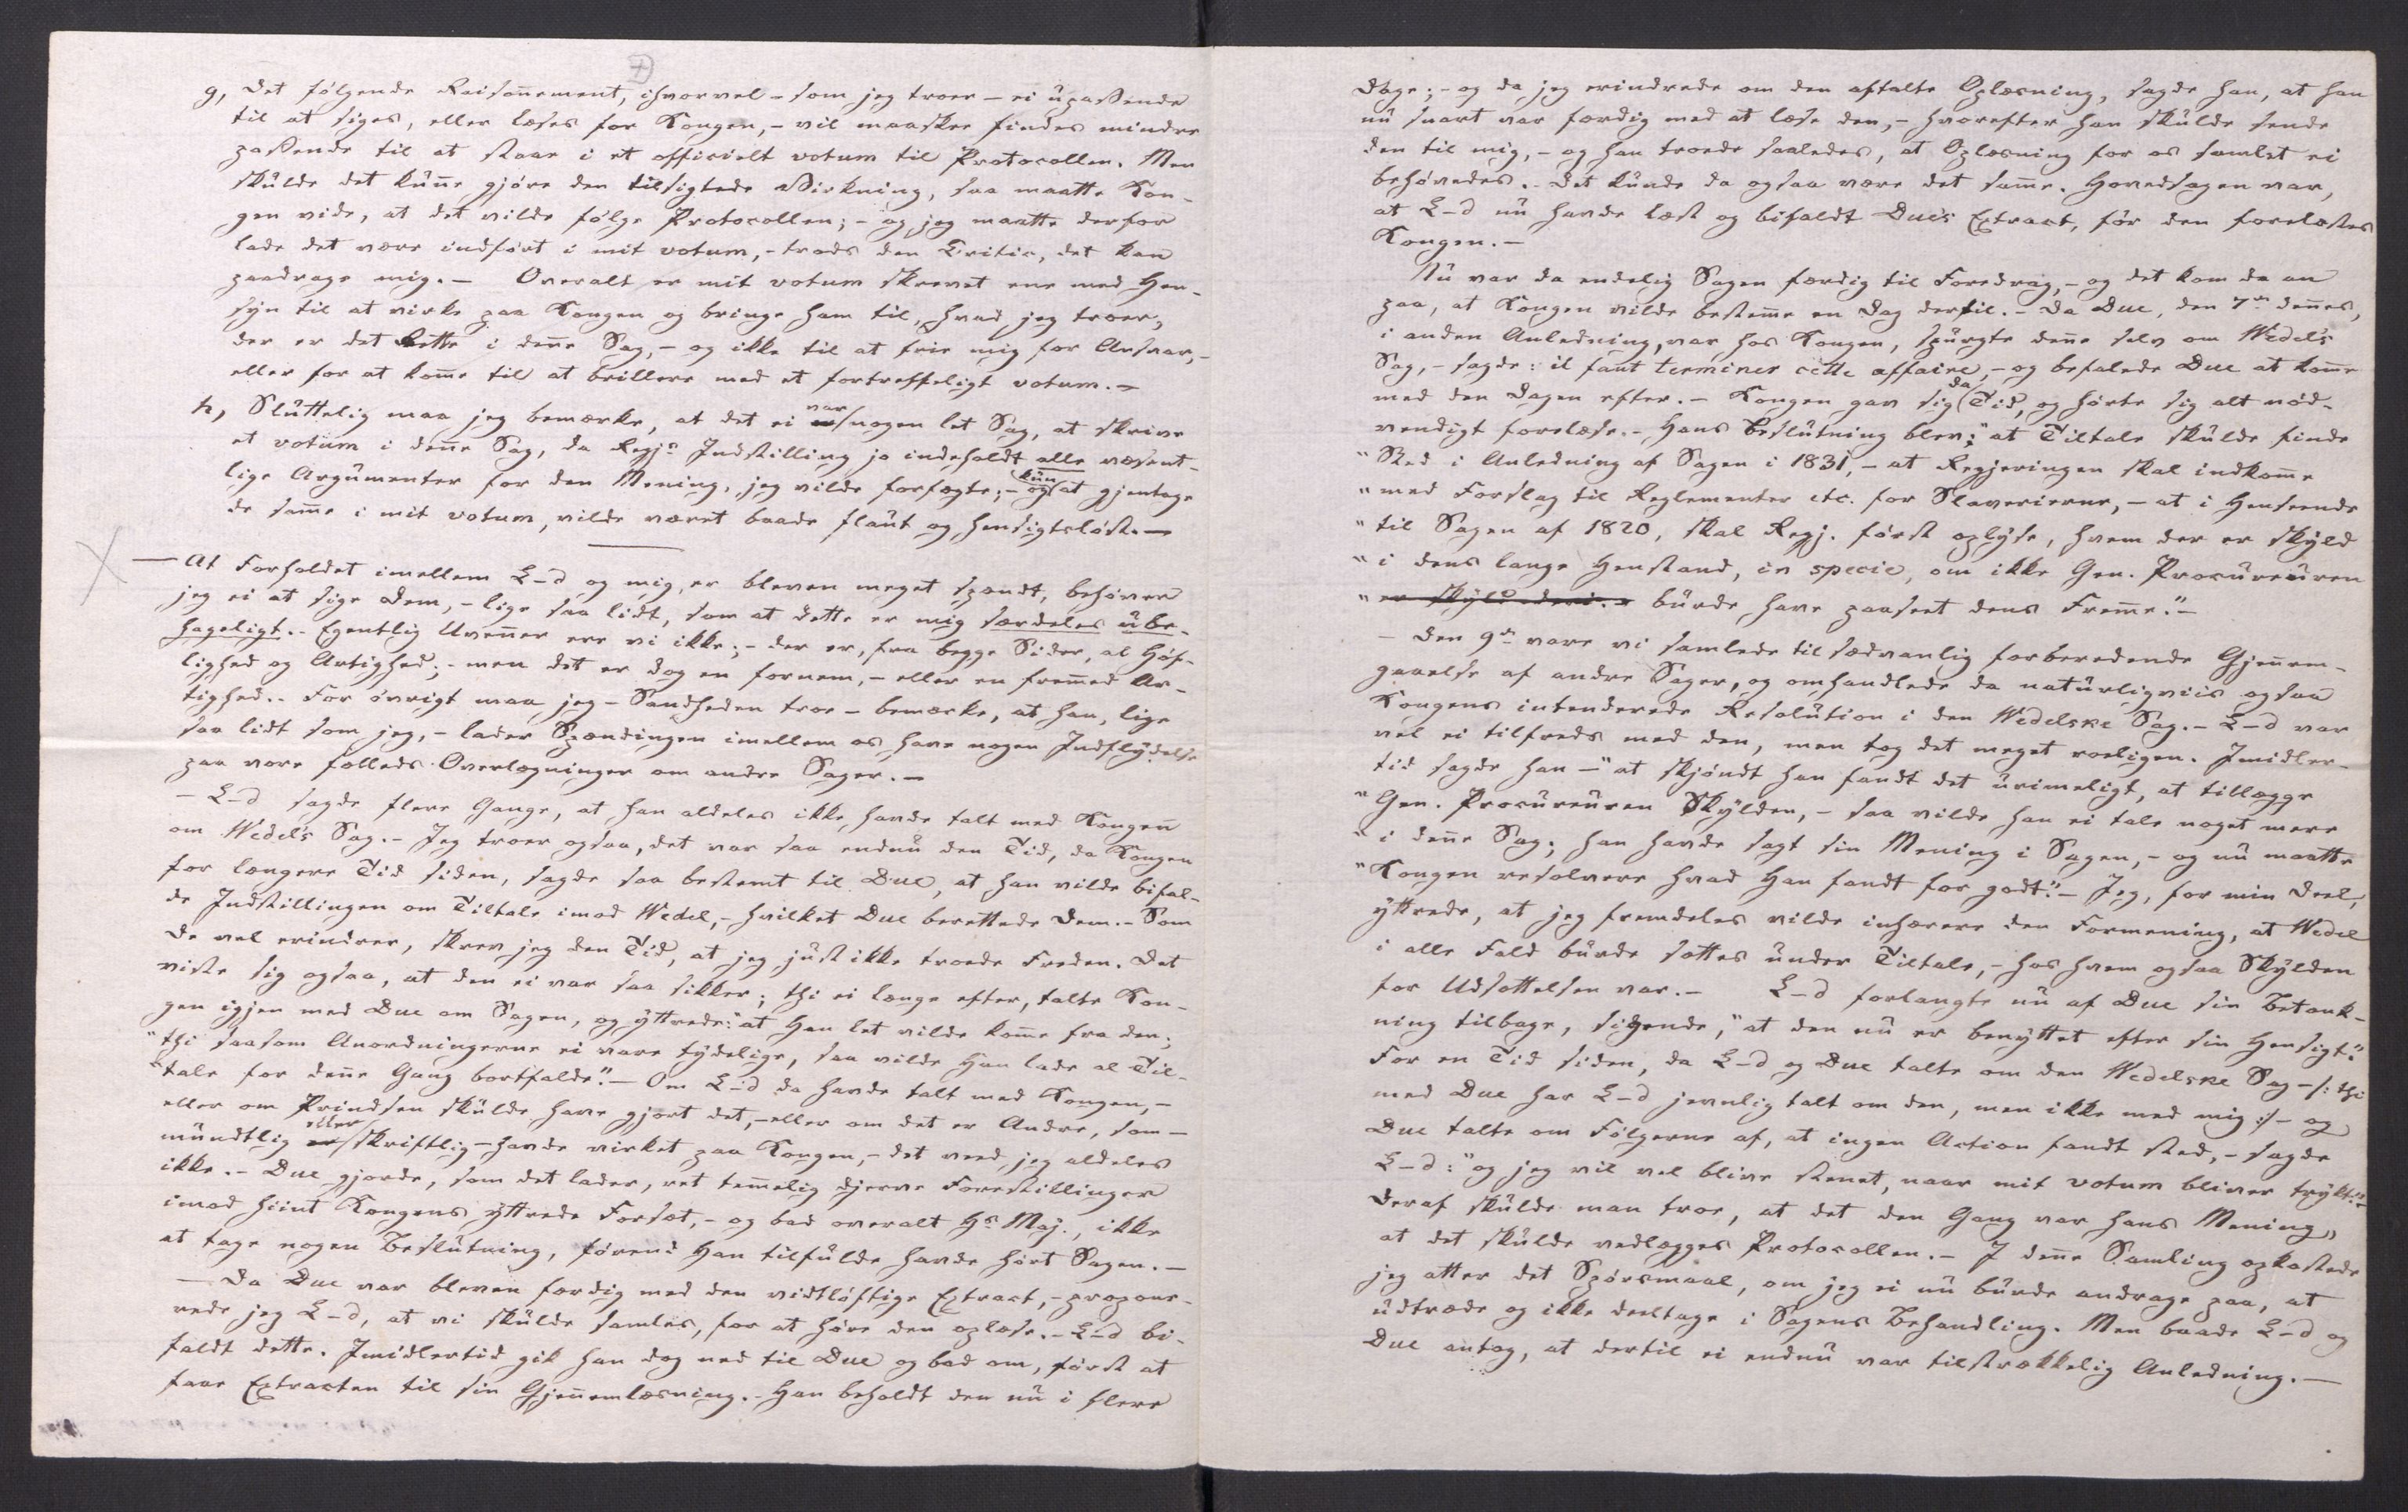 g, Det følgende Raisoñement, ihvorvel – som jeg troer – ei upassende
til at siges, eller læses for Kongen, – vil maaskee findes mindre
passende til at staae i et officielt votum til Protocollen. Men
skulde det kuñe gjøre den tilsigtede Virkning, saa maatte Kon-
gen vide, at det vilde følge Protocollen; – og jeg maatte derfor
lade det være indført i mit votum, – trods den Critic, det kan
paadrage mig. – Overalt er mit votum skrevet ene med Hen-
syn til at virke paa Kongen og bringe ham til, hvad jeg troer,
der er det Rette i deñe Sag, – og ikke til at frie mig for Ansvar, –
eller for at kom̃e til at brillere med et fortreffeligt votum. –
h, Sluttelig maa jeg bemærke, at det ei var nogen let Sag, at skrive
et votum i deñe Sag, da Regjs Indstilling jo indeholdt alle væsent-
lige Argumenter for den Mening, jeg vilde forfegte; – og kun at gjentage
de sam̃e i mit votum, vilde været baade flaut og hensigtsløst. –
— At Forholdet imellem L–d og mig, er bleven meget spændt, behøver
jeg ei at sige Dem, – lige saa lidt, som at dette er mig særdeles ube-
hageligt. – Egentlig Uveñer ere vi ikke; – der er, fra begge Sider, al Høf-
lighed og Artighed; – men det er dog en fornem, – eller en frem̃ed Ar-
tighed. – For øvrigt maa jeg – Sandheden troe – bemærke, at han, lige
saa lidt som jeg, – lader Spændingen imellem os have nogen Indflydelse
paa vore fælleds Overlægninger om andre Sager. –
– L–d sagde flere Gange, at han aldeles ikke havde talt med Kongen
om Wedel's Sag. – Jeg troer ogsaa, det var saa endnu den Tid, da Kongen
for længere Tid siden, sagde saa bestemt til Due, at han vilde bifal-
de Indstillingen om Tiltale imod Wedel, – hvilket Due berettede Dem. – Som
De vel erindrer, skrev jeg den Tid, at jeg just ikke troede Freden. Det
viste sig ogsaa, at den ei var saa sikker; thi ei længe efter, talte Kon-
gen igjen med Due om Sagen, og yttrede: "at Han let vilde kom̃e fra den;
"thi saasom Anordningerne ei vare tydelige, saa vilde Han lade al Til-
"tale for deñe Gang bortfalde." – Om L–d da havde talt med Kongen, –
eller om Prindsen skulde have gjort det, – eller om det er Andre, som –
mundtlig eller skriftlig – havde virket paa Kongen, – det veed jeg aldeles
ikke. – Due gjorde, som det lader, ret tem̃elig djerve Forestillinger
imod hiint Kongens yttrede Forsæt, – og bad overalt Hs Maj., ikke
at tage nogen Beslutning, førend Han tilfulde havde hørt Sagen. –
— Da Due var bleven færdig med den vidtløftige Extract, – propone-
rede jeg L–d, at vi skulde samles, for at høre den oplæse. – L–d bi-
faldt dette. Imidlertid gik han dog ned til Due og bad om, først at
faae Extracten til sin Gjeñemlæsning. – Han beholdt den nu i flere
Dage; – og da jeg erindrede om den aftalte Oplæsning, sagde han, at han
nu snart var færdig med at læse den, – hvorefter han skulde sende
den til mig, – og han troede saaledes, at Oplæsning for os samlet ei
behøvedes. – Det kunde da ogsaa være det sam̃e. Hovedsagen var,
at L–d nu havde læst og bifaldt Due's Extract, før den forelæstes
Kongen. –
Nu var da endelig Sagen færdig til Foredrag, – og det kom da an
paa, at Kongen vilde bestem̃e en Dag dertil. – Da Due, den 7de deñes,
i anden Anledning, var hos Kongen, spurgte deñe selv om Wedel's
Sag, – sagde: il faut terminer cette affaire, – og befalede Due at kom̃e
med den Dagen efter. – Kongen gav sig da Tid, og hørte sig alt nød-
vendigt forelæse. – Hans Beslutning blev: "at Tiltale skulde finde
"Sted i Anledning af Sagen i 1831, – at Regjeringen skal indkom̃e
"med Forslag til Reglementer etc. for Slaverierne, – at i Henseende
"til Sagen af 1820, skal Regj. først oplyse, hvem der er Skyld
"i dens lange Henstand, in specie, om ikke Gen. Procureuren
"er Skyld deri. – burde have paaseet dens Frem̃e." –
– Den 9de vare vi samlede til sædvanlig forberedende Gjeñem-
gaaelse af andre Sager, og omhandlede da naturligviis ogsaa
Kongens intenderede Resolution i den Wedelske Sag. – L–d var
vel ei tilfreds med den, men tog det meget roeligen. Imidler-
tid sagde han – "at skjøndt han fandt det urimeligt, at tillægge
"Gen. Procureuren Skylden, – saa vilde han ei tale noget mere
"i deñe Sag; han havde sagt sin Mening i Sagen, – og nu maatte
"Kongen resolvere hvad Han fandt for godt." – Jeg, for min Deel,
yttrede, at jeg fremdeles vilde inhærere den Formening, at Wedel
i alle Fald burde sættes under Tiltale, – hos hvem ogsaa Skylden
for Udsættelsen var. – L–d forlangte nu af Due sin Betænk-
ning tilbage, sigende, "at den nu er benyttet efter sin Hensigt."
For en Tid siden, da L–d og Due talte om den Wedelske Sag – /: thi
med Due har L–d jevnlig talt om den, men ikke med mig :/ – og
Due talte om Følgerne af, at ingen Action fandt sted, – sagde
L–d: "og jeg vil vel blive stenet, naar mit votum bliver trykt." –
Deraf skulde man troe, at det den Gang var hans Mening,
at det skulde vedlægges Protocollen. – I deñe Samling opkastede
jeg atter det Spørsmaal, om jeg ei nu burde andrage paa, at
udtræde og ikke deeltage i Sagens Behandling. Men baade L–d og
Due antog, at dertil ei endnu var tilstrækkelig Anledning. –